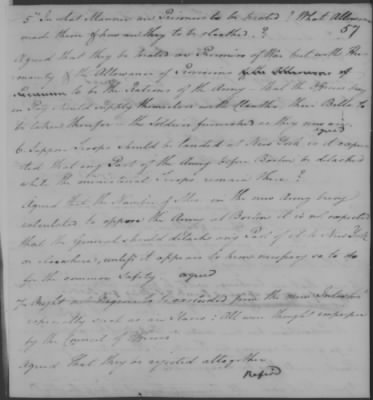 5th In what Manner are Prisoners to be treated? What Allowance
57
made them & how are they to be cloathed?
Agreed that they be treated as Prisoners of War but with Hu-
manity & the Allowance of Provisions
to be the Rations of the Army. That the Officers being
in Pay should supply themselves with Cloaths, their Bills to
be taken therefor & the Soldiers furnished as they now are.
agreed
6. Suppose Troops should be landed at New York is it expec-
ted that any Part of the Army before Boston be detached
while the ministerial Troops remain there?
Agreed that the Number of Men in the new Army being
calculated to oppose the Army at Boston it is not expected
that the General should detach any Part of it to New York
or elsewhere, unless it appears to him necessary so to do
for the common Safety. agreed
7. Ought not Negroes to be excluded from the new Inlistment
especially such as are Slaves: All were thought improper
by the Council of Officers
Agreed That they be rejected altogether